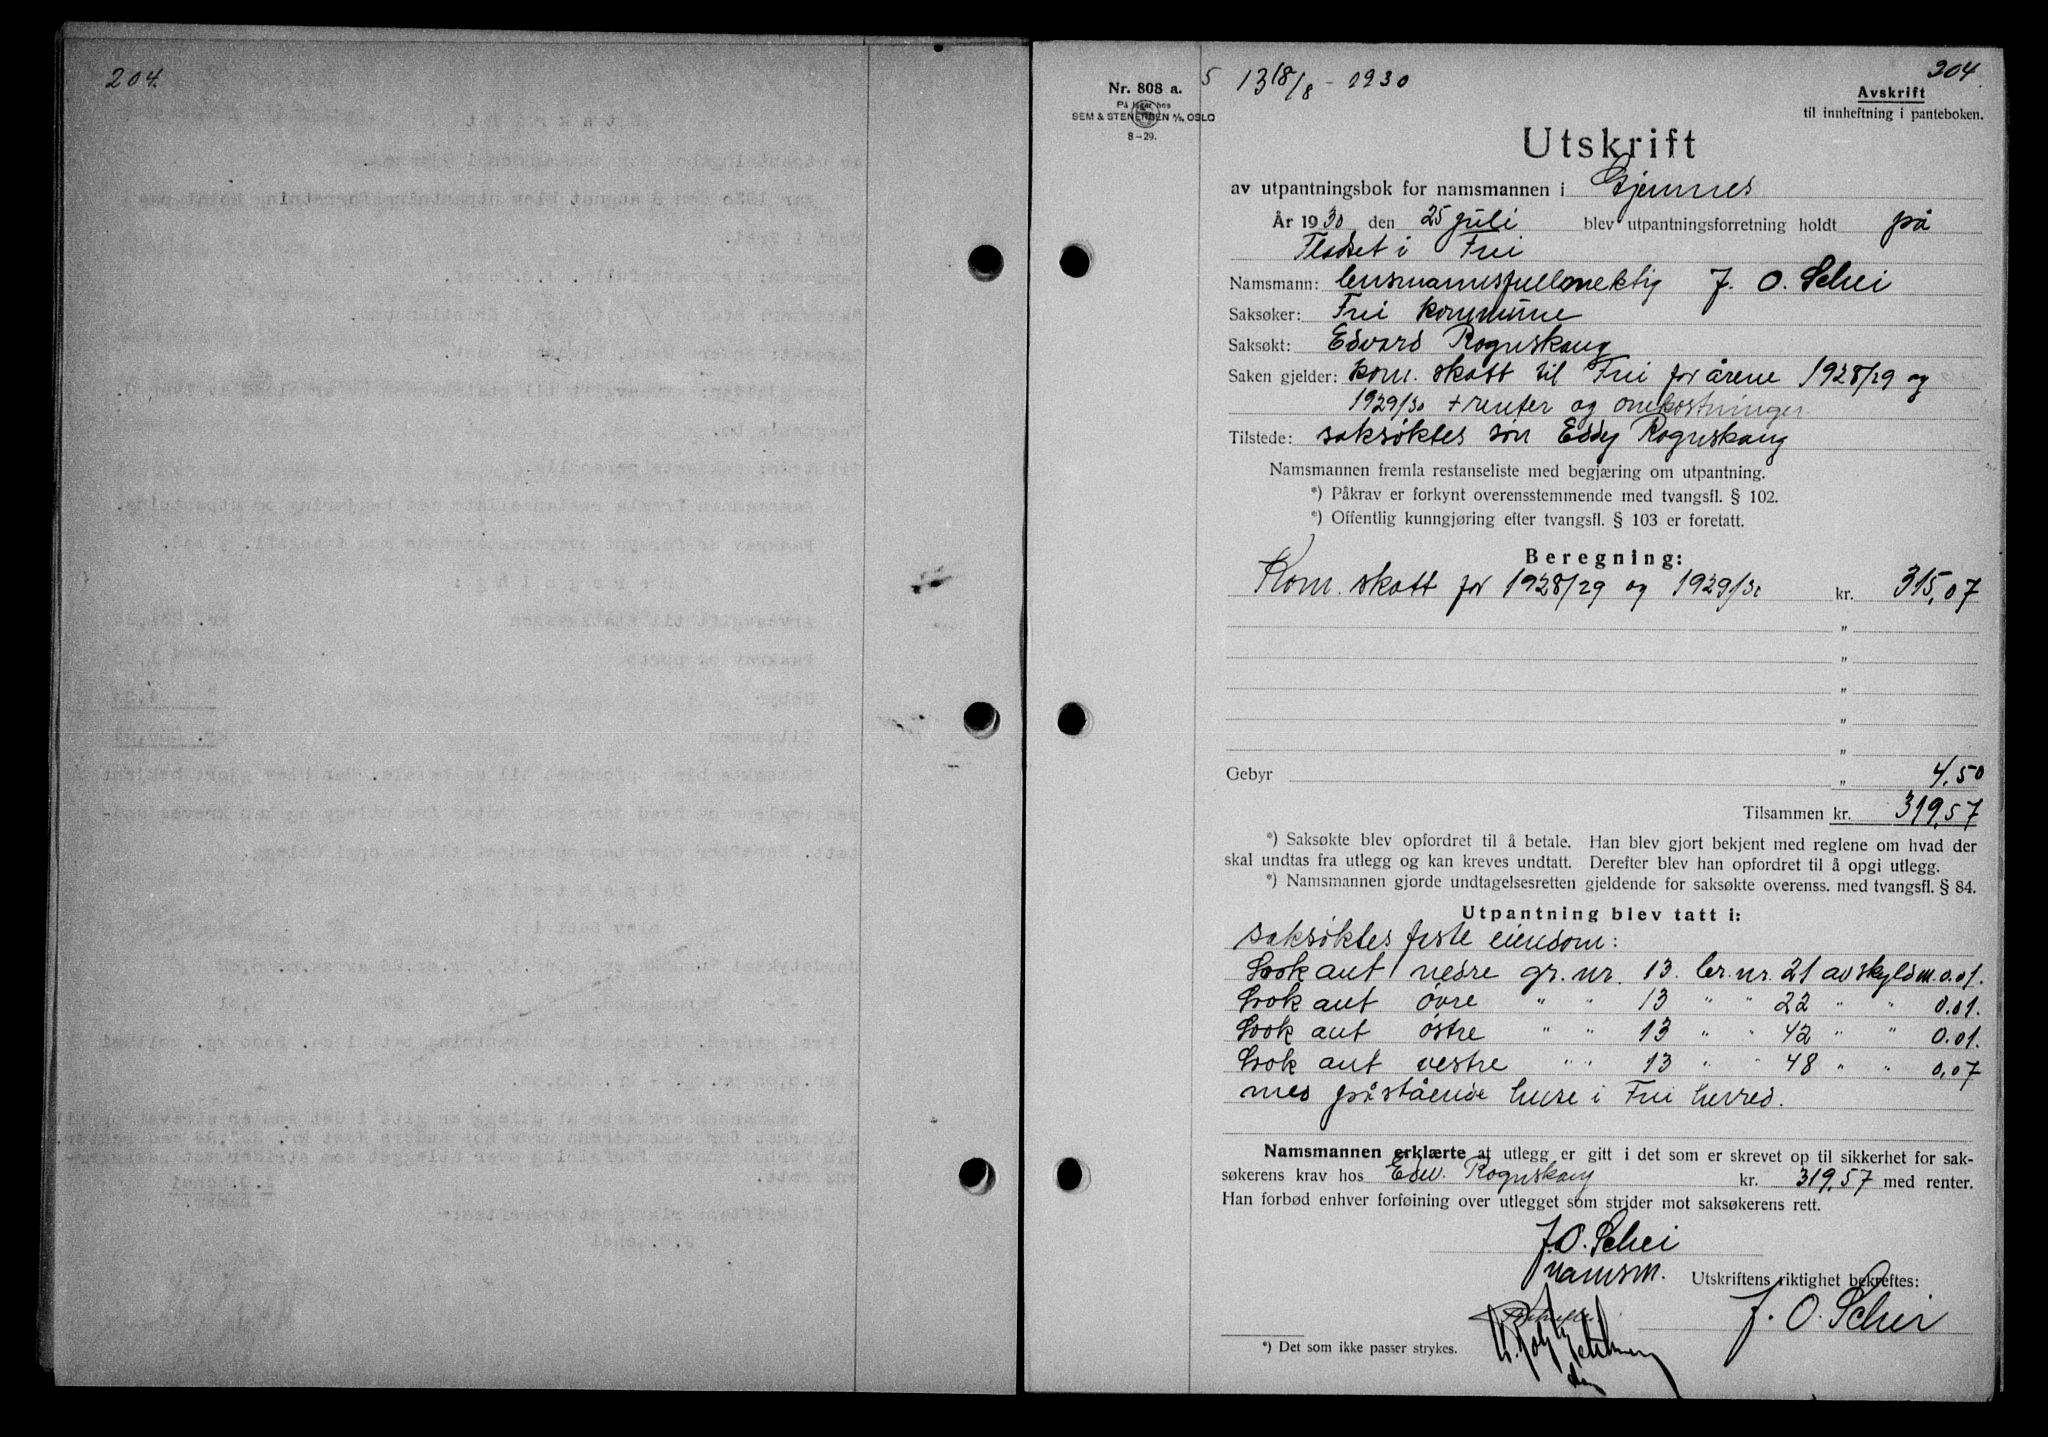 204.
Nr. 808 a.
På lager hos
SEM & STENERSEN A/S, OSLO
8-29.
5 13 18/8 - 1930
204.
Avskrift
til innheftning i panteboken.
Utskrift
av utpantningsbok for namsmannen i Gjemnes
År 1930 den 25 juli blev utpantningsforretning holdt på
Flatset i Frei
Namsmann: lensmannsfullmektig J. O. Schei
Saksøker: Frei kommune
Saksøkt: Edvard Rognskaug
Saken gjelder: kom. skatt til Frei for årene 1928/29 og
1929/30 + renter og omkostninger
Tilstede: saksøktes søn Eddy Rognskaug
Namsmannen fremla restanseliste med begjæring om utpantning.
*) Påkrav er forkynt overensstemmende med tvangsfl. § 102.
*) Offentlig kunngjøring efter tvangsfl. § 103 er foretatt.
Beregning:
Kom. skatt for 1928/29 og 1929/30 kr. 315,07
"
"
"
"
"
Gebyr " 4,50
Tilsammen kr. 319,57
*) Saksøkte blev opfordret til å betale. Han blev gjort bekjent med reglene om hvad der
skal undtas fra utlegg og kan kreves undtatt. Derefter blev han opfordret til å opgi utlegg.
*) Namsmannen gjorde undtagelsesretten gjeldende for saksøkte overenss. med tvangsfl. § 84.
Utpantning blev tatt i:
saksøktes faste eiendom:
nedre gr. nr. 13 br. nr. 21 av skyld m. 0.01.
øvre " " 13 " " 22 " " 0.01.
østre " " 13 " " 42 " " 0.01.
vestre " " 13 " " 48 " " 0,07
med påstående huse i Frei herred.
Namsmannen erklærte at utlegg er gitt i det som er skrevet op til sikkerhet for sak-
søkerens krav hos Edv. Rognskaug kr. 319,57 med renter.
Han forbød enhver forføining over utlegget som strider mot saksøkerens rett.
J. O. Schei
namsm.
Utskriftens riktighet bekreftes:
J. O. Schei
*) Det som ikke passer strykes.